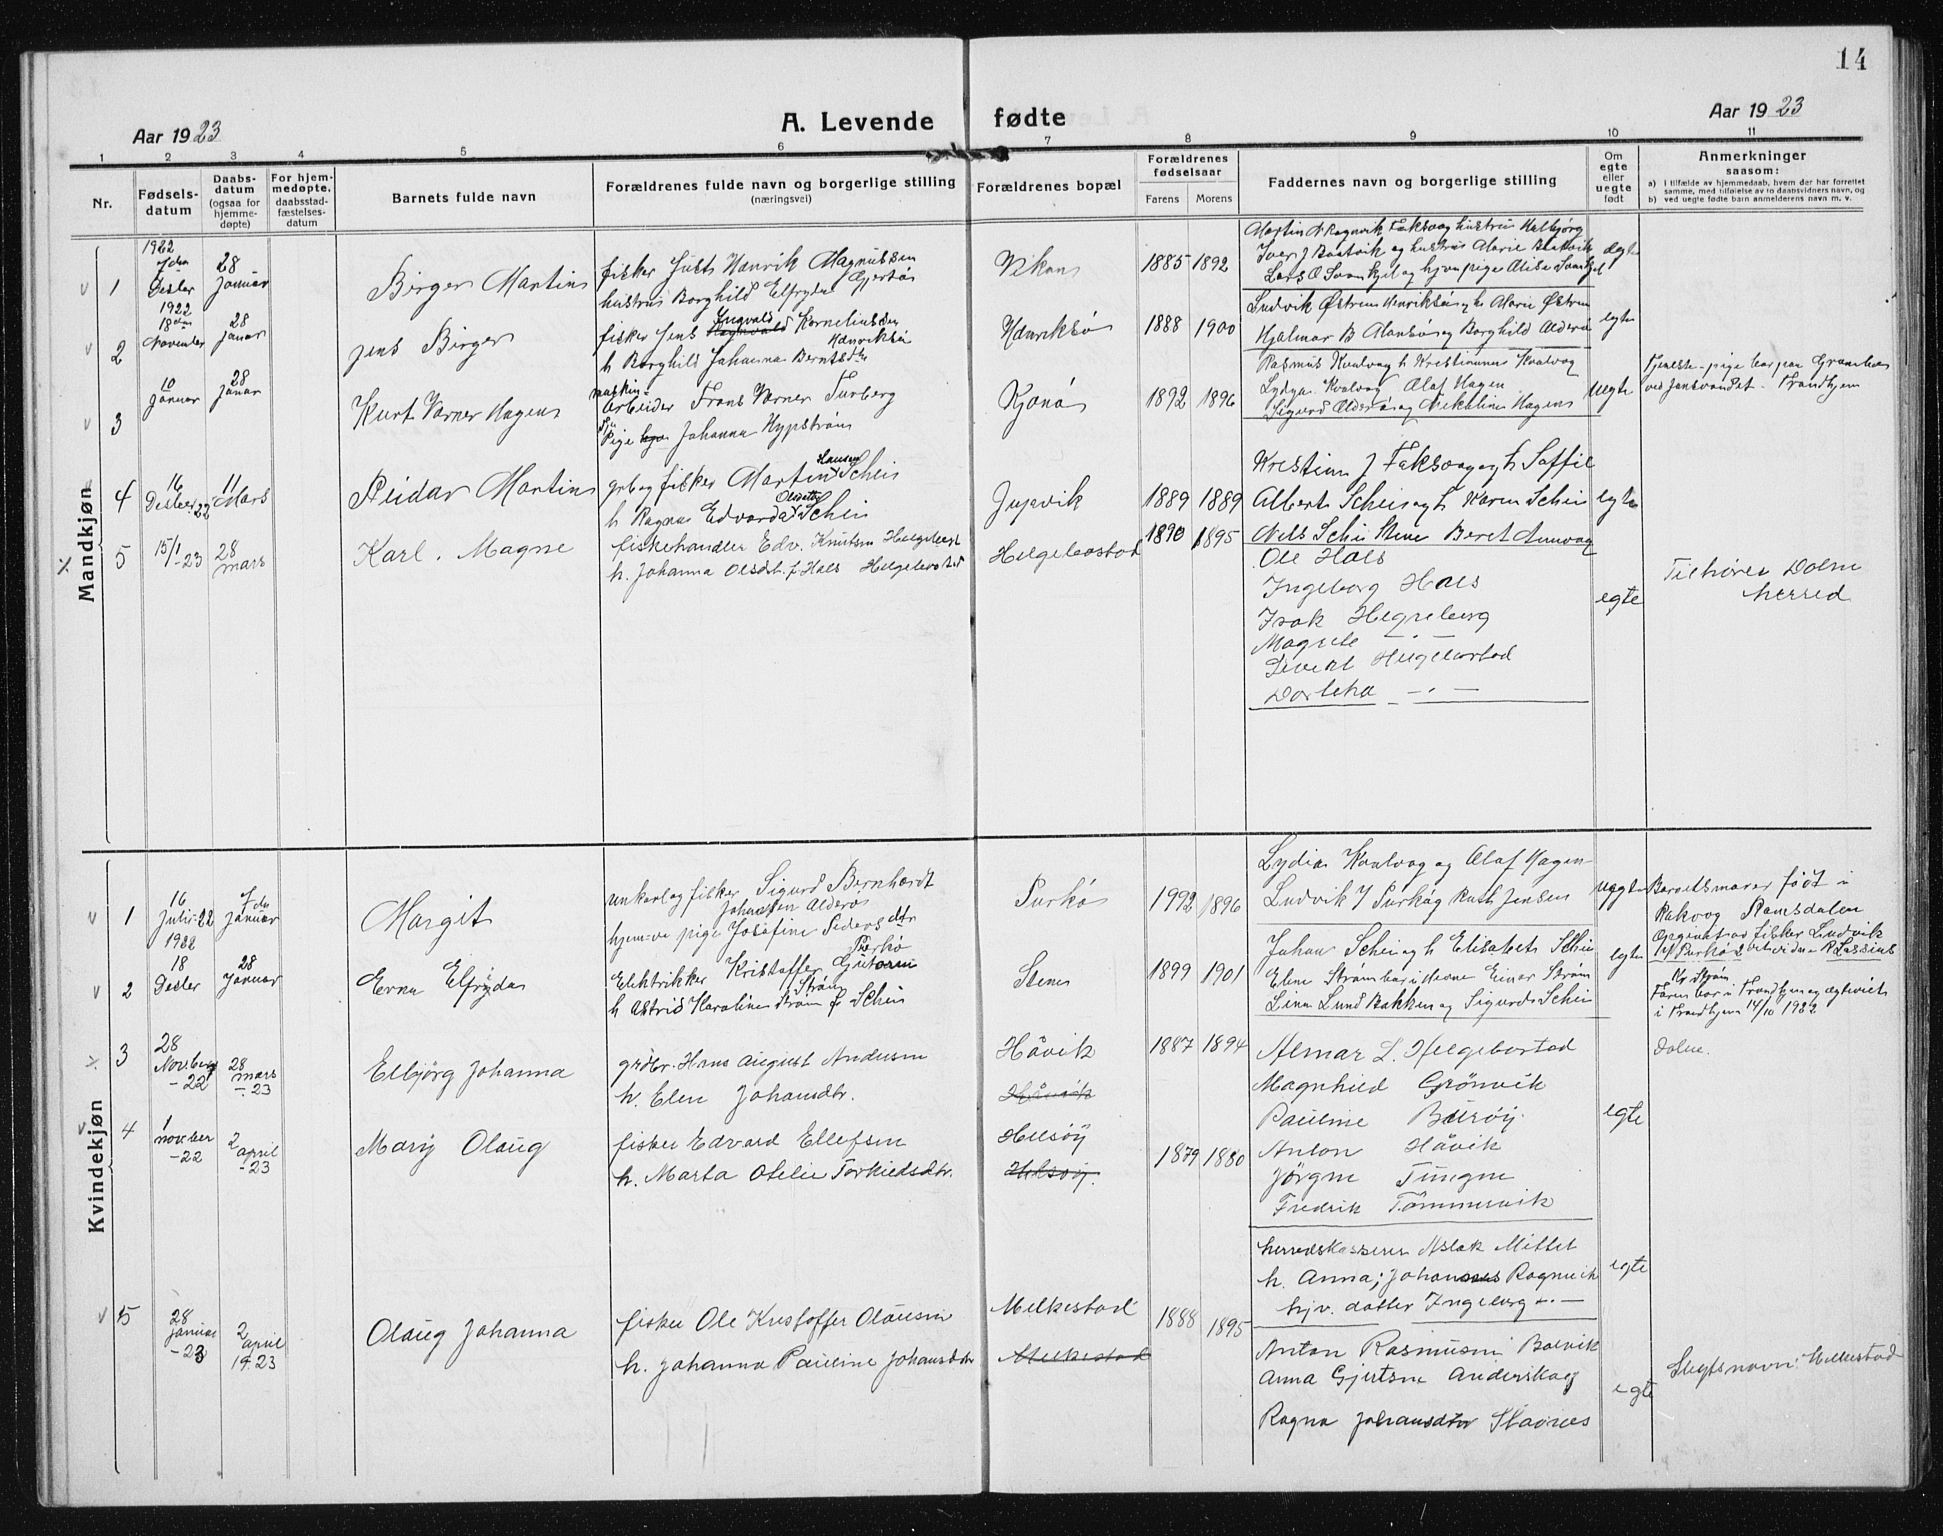 14
Aar 1923
A. Levende fødte
Aar 1923
1 2 3 4 5 6 7 8 9 10 11
Nr.
Fødsels-
datum
Daabs-
datum
(ogsaa for
hjemme-
døpte)
For hjem-
medøpte,
daabsstad-
fæstelses-
datum
Barnets fulde navn
Forældrenes fulde navn og borgerlige stilling
(næringsvei)
Forældrenes bopæl
Forældrenes
fødselsaar
Farens
Morens
Faddernes navn og borgerlige stilling
Om
egte
eller
uegte
født
Anmerkninger
saasom:
a) i tilfælde av hjemmedaab, hvem der har forrettet
samme, med tilføielse av to daabsvidners navn, og
b) ved uegte fødte barn anmelderens navn m. v.
Mandkjøn
1
1922
7de
Desbr
28
Januar
Birger Martin
fisker Juth Henrik Magnussen
hustru Borghild Elfryda Gjertsø
Vikan
1885 1892
Iver J Bustvik og hustru Marie Bustvik
ægte
2
1922
18de
November
28
Januar
Jens Birger
fisker Jens Ingvald Korneliussen
Henriksø
h Borghild Johanna Berntsdtr
Henriksø
1888 1900
Ludvik Østrem Henriksø og h Marie Østrem
Hjalmar B Mansø og Borghild Alderø
egte
3
10
Januar
28
Januar
Kurt Verner Hagen
maskin-
arbeider Frans Verner Furberg
Pige Johanna Nypstrøm
Kjønø
1892 1896
Rasmus Kvalvag h Kristianna Kvalvag
Lydya Kvalvag Olaf Hagen
Sigurd Alderø og Nikoline Hagen
uegte
Tjeneste-pige bor paa Granheim
ved Jonsvandet - Trondhjem
4
16
Desber 22
11
Mars
Reidar Martin
grb og fisker Martin Hansen Schei
h Ragna Edvarda Olsdtr Schei
Jupvik
1889 1889
Kristian J Faksvag og h Soffie
Albert Schei og h Karen Schei
Nils Schei Stene Beret Aunvag
egte
5
15/1-23
28
mars
Karl. Magne
fiskehandler Edv. Knutsen Helgebost
h. Johanna Olsdt. f Hals Helgebostad
Helgebostad
1890 1895
Ole Hals
Ingeborg Hals
Isak Hegreberg
Magrete - " -
Sivert Helgebostad
Dortea - " -
egte
Tilhører Dolm
herred
Kvindekjøn
1
16
Juli-22
7de
Januar
Margit
unkarl og fisker Sigurd Bernhardt
Johansen Alderø
hjem-v pige Josefine Pedersdtr
Purkø
Purkø
1992 1896
Lydia Kvalvag og Olaf Hagen
Ludvik J Purkø og Ruth Jensen
uegte
Barnets moder født i
Rakvog Romsdalen
Opgivet av fisker Ludvik
J Purkø
2
1922
18
Desbr
28
Januar
Erna Elfryda
Elektrikker Kristoffer
h Astrid Karoline Strøm f Schei
Stene
1899 1901
Johan Schei og h Elisabeth Schei
Elen Strøm Einar Strøm
Lina Lund Bakken og Sigurd Schei
egte
Faren bor i Trondhjem og ægteviet
i Trondhjem 14/10 1922
3
28
Novber
-22
28
mars
-23
Elbjørg Johanna
grdbr. Hans August Andersen
h. Elen Johansdtr.
Håvik
Håvik
1887 1894
Almar L. Helgebostad
Magnhild Grønvik
Pauline Burøy
Anton Håvik
Jørgine Tungen
Fredrik Tømmervik
egte
Dolm.
4
1
novber
-22
2
april
-23
Mary Olaug
fisker Edvard Ellefsen
h. Marta Otelie Torkildsdtr.
Helsøy
Helsøy.
1879 1880
herredskasserer Aslak Mittet
h. Anna; Johannes Ragnvik
hjv. datter Ingeborg - " -
egte
5
28
Januar
-23
2
april
19.23
Olaug Johanna
fisker Ole Kristoffer Olausen
h. Johanna Pauline Johansdtr
Melkestad
Melkestad
1888 1895
Anton Rasmusen Bolvik
Anna Gjertsen Anderskog
Ragna Johansdtr Stavnes
egte
Slegtsnavn: Melkestad